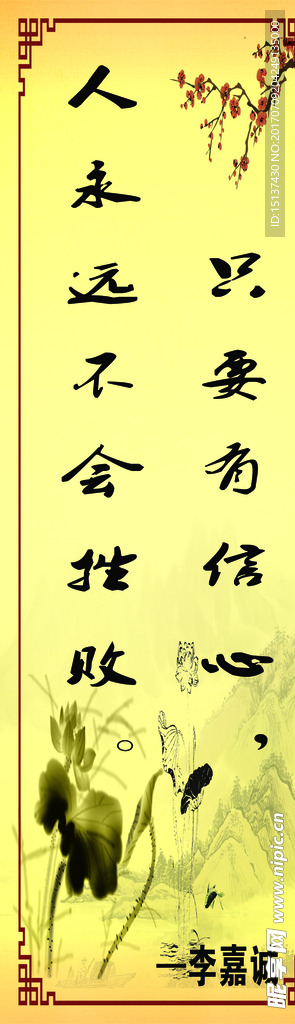 只要有信心，
人永远不会挫败。
—李嘉诚
昵享网 www.nipic.cn
ID:15137430 NO:20170709204249135000